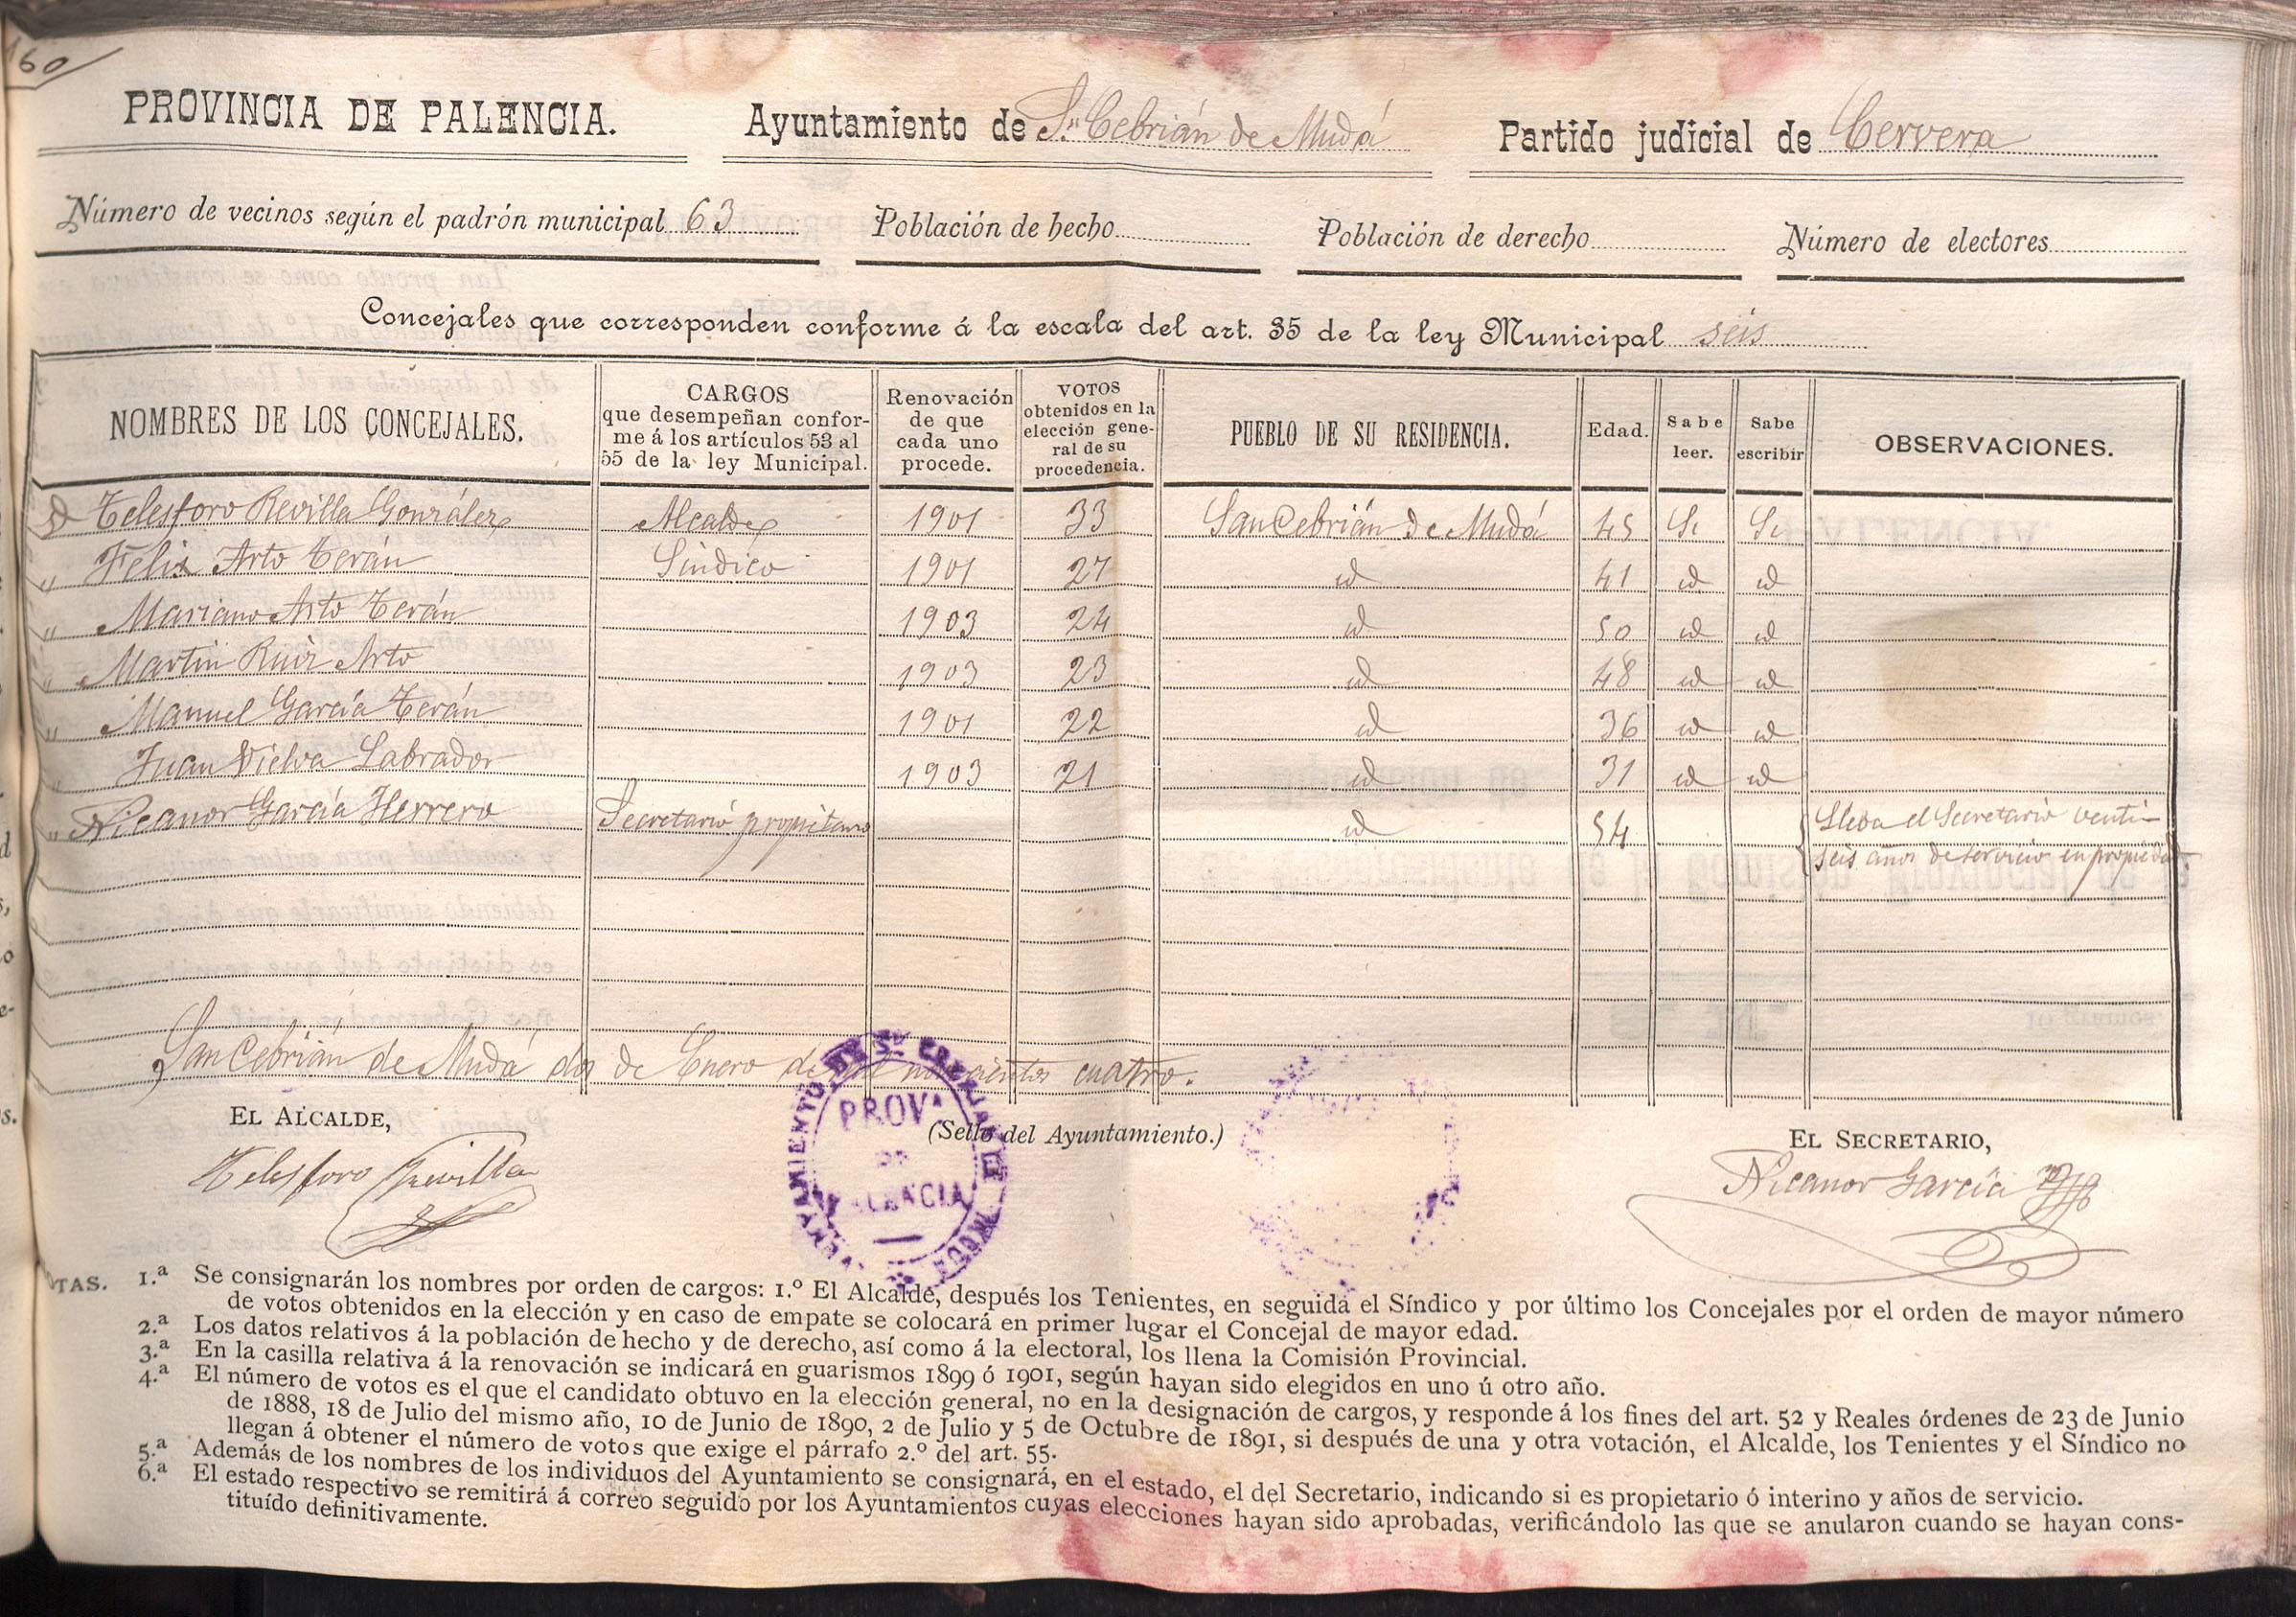 160
PROVINCIA DE PALENCIA. Ayuntamiento de Sn. Cebrián de Mudá Partido judicial de Cervera
Número de vecinos según el padrón municipal 63 Población de hecho Población de derecho Número de electores
Concejales que corresponden conforme á la escala del art. 35 de la ley Municipal seis
NOMBRES DE LOS CONCEJALES. CARGOS que desempeñan conforme á los artículos 53 al 55 de la ley Municipal. Renovación de que cada uno procede. VOTOS obtenidos en la elección general de su procedencia. PUEBLO DE SU RESIDENCIA. Edad. Sabe leer. Sabe escribir OBSERVACIONES.
D Telesforo Revilla González Alcalde 1901 33 San Cebrián de Mudá 45 Si Si
" Felix Arto Terán Sindico 1901 27 id 41 id id
" Mariano Arto Terán 1903 24 id 50 id id
" Martin Ruiz Arto 1903 23 id 48 id id
" Manuel García Terán 1901 22 id 36 id id
" Juan Vielva Labrador 1903 21 id 31 id id
" Nicanor García Herrero Secretario propietario id 54 Lleva el Secretario venti-
seis años de servicio en propiedad.
San Cebrián de Mudá dos de Enero de mil novecientos cuatro.
EL ALCALDE,
Telesforo Revilla
(Sello del Ayuntamiento.)
AYUNTAMIENTO DE Sn. CEBRIAN DE MUDA
PROVA
DE
PALENCIA
EL SECRETARIO,
Nicanor García
NOTAS. 1.ª Se consignarán los nombres por orden de cargos: 1.º El Alcalde, después los Tenientes, en seguida el Síndico y por último los Concejales por el orden de mayor número
de votos obtenidos en la elección y en caso de empate se colocará en primer lugar el Concejal de mayor edad.
2.ª Los datos relativos á la población de hecho y de derecho, así como á la electoral, los llena la Comisión Provincial.
3.ª En la casilla relativa á la renovación se indicará en guarismos 1899 ó 1901, según hayan sido elegidos en uno ú otro año.
4.ª El número de votos es el que el candidato obtuvo en la elección general, no en la designación de cargos, y responde á los fines del art. 52 y Reales órdenes de 23 de Junio
de 1888, 18 de Julio del mismo año, 10 de Junio de 1890, 2 de Julio y 5 de Octubre de 1891, si después de una y otra votación, el Alcalde, los Tenientes y el Síndico no
llegan á obtener el número de votos que exige el párrafo 2.º del art. 55.
5.ª Además de los nombres de los individuos del Ayuntamiento se consignará, en el estado, el del Secretario, indicando si es propietario ó interino y años de servicio.
6.ª El estado respectivo se remitirá á correo seguido por los Ayuntamientos cuyas elecciones hayan sido aprobadas, verificándolo las que se anularon cuando se hayan cons-
tituído definitivamente.